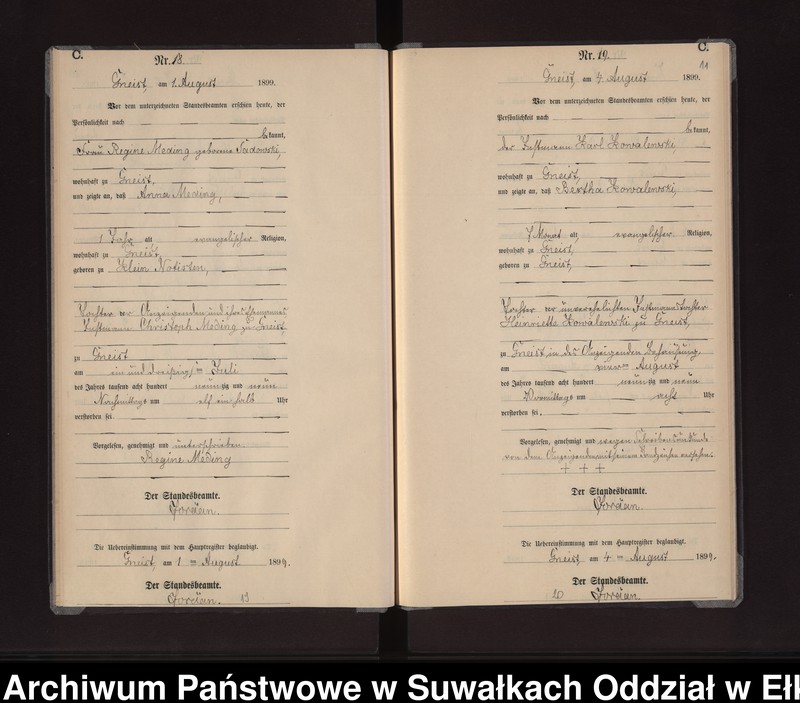 C.
Nr. 18.
Gneist, am 1. August 1899.
Vor dem unterzeichneten Standesbeamten erschien heute, der
Persönlichkeit nach
bekannt,
Frau Regine Meding geborene Sadowski,
wohnhaft zu Gneist,
und zeigte an, daß Anna Meding,
1 Jahr alt evangelischer Religion,
wohnhaft zu Gneist,
geboren zu Klein Notisten,
Tochter der Anzeigenden und ihres Ehemannes
Instmann Christoph Meding zu Gneist
zu Gneist
am ein und dreißigsten Juli
des Jahres tausend acht hundert neunzig und neun
Nachmittags um elf ein halb Uhr
verstorben sei
Vorgelesen, genehmigt und unterschrieben
Regine Meding
Der Standesbeamte.
Die Uebereinstimmung mit dem Hauptregister beglaubigt.
Gneist, am 1 ten August 1899.
Der Standesbeamte.
19
C.
Nr. 19.
Gneist, am 4. August 1899.
Vor dem unterzeichneten Standesbeamten erschien heute, der
Persönlichkeit nach
bekannt,
der Instmann Karl Kowalewski,
wohnhaft zu Gneist,
und zeigte an, daß Bertha Kowalewski,
Monat alt, evangelischer Religion,
wohnhaft zu Gneist,
geboren zu Gneist,
Tochter der unverehelichten Instmannstochter
Heinriette Kowalewski zu Gneist,
zu Gneist in des Anzeigenden Behausung
am August
des Jahres tausend acht hundert neunzig und neun
Vormittags um acht Uhr
verstorben sei.
Vorgelesen, genehmigt und wegen Schreibensunkunde
von dem Anzeigenden mit seinem Handzeichen versehen.
+ + +
Der Standesbeamte.
Die Uebereinstimmung mit dem Hauptregister beglaubigt.
Gneist, am 4 ten August 1899.
Der Standesbeamte.
20
Archiwum Państwowe w Suwałkach Oddział w Ełk